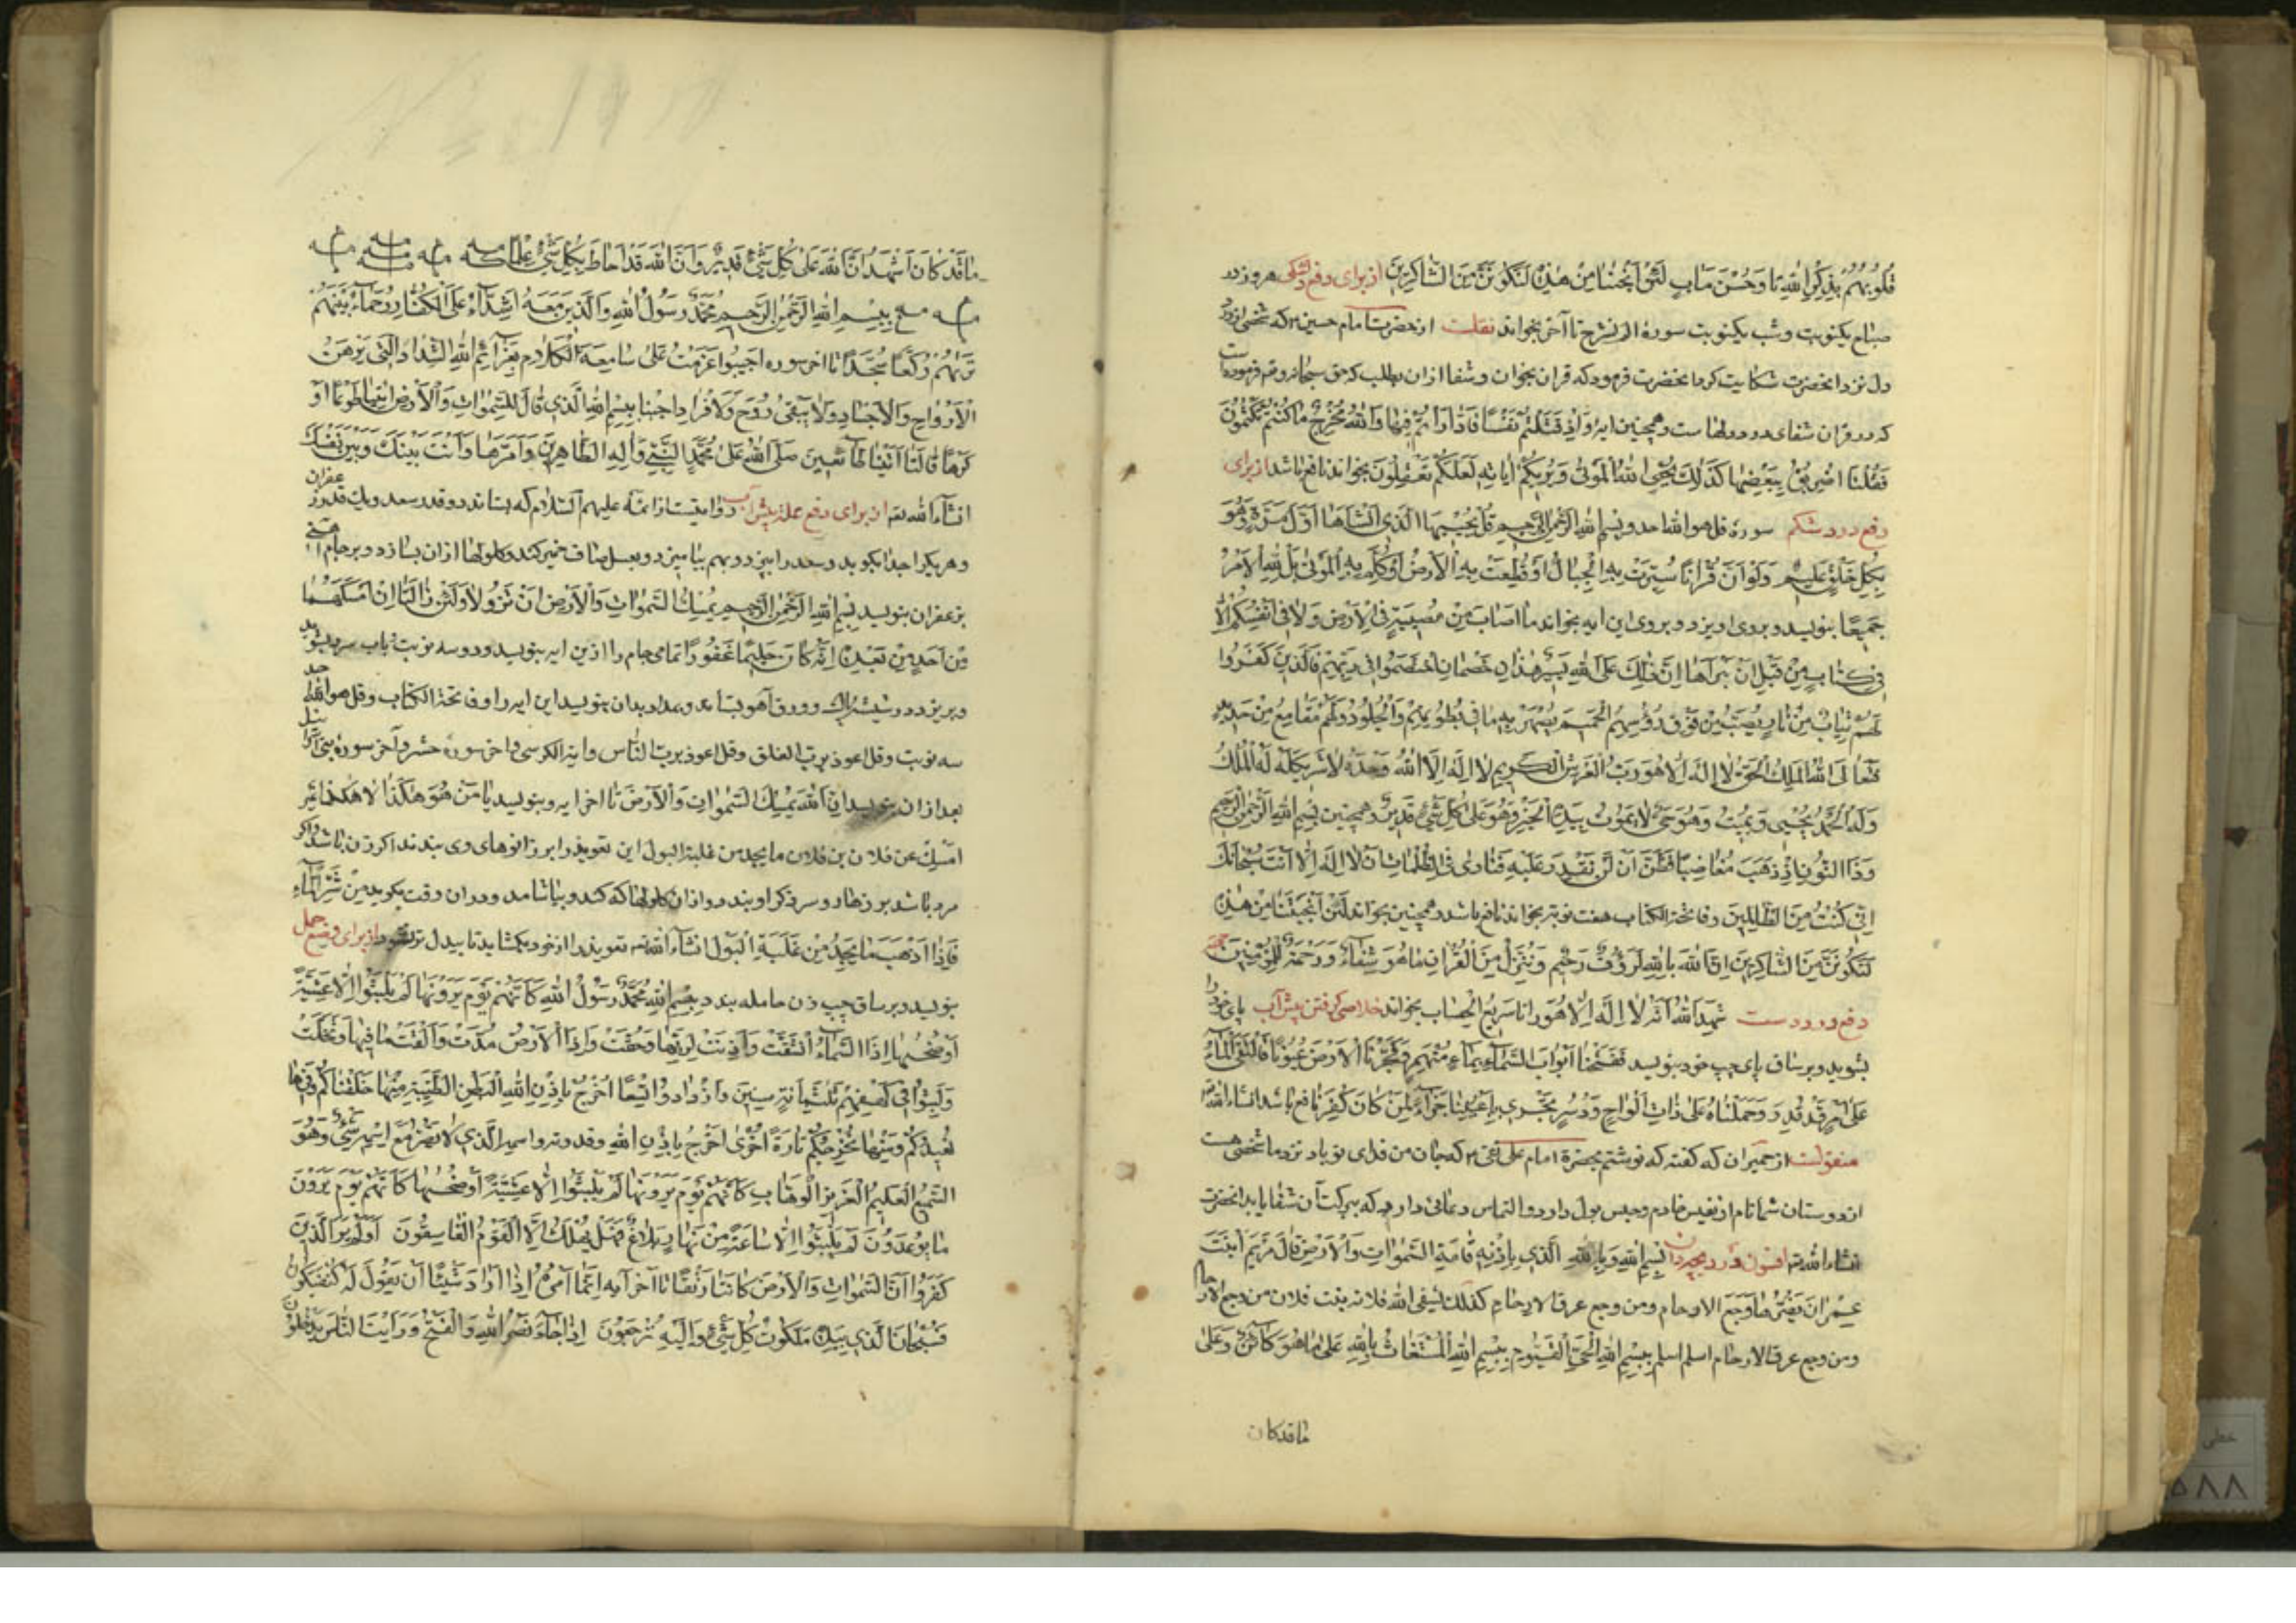 قُلُوبُهُمْ بِذِكْرِ اللهِ وَحُسْنَ مَاٰبٍ لَئِنْ اَنْجَيْتَنَا مِنْ هٰذِهِ لَنَكُونَنَّ مِنَ الشَّاكِرِينَ از برای دفع هر روز در
صباح یکنوبت و شب یکنوبت سورهٔ الم نشرح تا آخر بخواند نقلست از حضرت امام حسین که شخصی از درد
دل نزد آنحضرت شکایت کرد آنحضرت فرمود که قران بخوان و شفا ازان بطلب که حق سبحانه و تعالی فرموده است
که در قران شفای درد دلهاست و همچنین ایه وَاِذْ قَتَلْتُمْ نَفْسًا فَادَّارَأْتُمْ فِيهَا وَاللهُ مُخْرِجٌ مَا كُنْتُمْ تَكْتُمُونَ
فَقُلْنَا اضْرِبُوهُ بِبَعْضِهَا كَذٰلِكَ يُحْيِي اللهُ الْمَوْتٰى وَيُرِيكُمْ اٰيَاتِهِ لَعَلَّكُمْ تَعْقِلُونَ بخواند نافع باشد از برای
دفع درد شکم سورهٔ قل هو الله احد و بسم الله الرحمن الرحیم قُلْ يُحْيِيهَا الَّذِي اَنْشَاَهَا اَوَّلَ مَرَّةٍ وَهُوَ
بِكُلِّ خَلْقٍ عَلِيمٌ وَلَوْ اَنَّ قُرْاٰنًا سُيِّرَتْ بِهِ الْجِبَالُ اَوْ قُطِّعَتْ بِهِ الْاَرْضُ اَوْ كُلِّمَ بِهِ الْمَوْتٰى بَلْ لِلهِ الْاَمْرُ
جَمِيعًا بنویسد و بروی اویزد و بروی این ایه بخواند مَا اَصَابَ مِنْ مُصِيبَةٍ فِي الْاَرْضِ وَلَا فِي اَنْفُسِكُمْ اِلَّا
فِي كِتَابٍ مِنْ قَبْلِ اَنْ نَبْرَاَهَا اِنَّ ذٰلِكَ عَلَى اللهِ يَسِيرٌ هٰذَانِ خَصْمَانِ اخْتَصَمُوا فِي رَبِّهِمْ فَالَّذِينَ كَفَرُوا
لَهُمْ ثِيَابٌ مِنْ نَارٍ يُصَبُّ مِنْ فَوْقِ رُؤُسِهِمُ الْحَمِيمُ يُصْهَرُ بِهِ مَا فِي بُطُونِهِمْ وَالْجُلُودُ وَلَهُمْ مَقَامِعُ مِنْ حَدِيدٍ
فَتَعَالَى اللهُ الْمَلِكُ الْحَقُّ لَا اِلٰهَ اِلَّا هُوَ رَبُّ الْعَرْشِ الْكَرِيمِ لَا اِلٰهَ اِلَّا اللهُ وَحْدَهُ لَا شَرِيكَ لَهُ لَهُ الْمُلْكُ
وَلَهُ الْحَمْدُ يُحْيِي وَيُمِيتُ وَهُوَ حَيٌّ لَا يَمُوتُ بِيَدِهِ الْخَيْرُ وَهُوَ عَلٰى كُلِّ شَيْءٍ قَدِيرٌ و همچنین بِسْمِ اللهِ الرَّحْمٰنِ الرَّحِيمِ
وَذَا النُّونِ اِذْ ذَهَبَ مُغَاضِبًا فَظَنَّ اَنْ لَنْ نَقْدِرَ عَلَيْهِ فَنَادٰى فِي الظُّلُمَاتِ اَنْ لَا اِلٰهَ اِلَّا اَنْتَ سُبْحَانَكَ
اِنِّي كُنْتُ مِنَ الظَّالِمِينَ و فاتحة الکتاب هفت نوبت بخواند نافع باشد و همچنین بخواند لَئِنْ اَنْجَيْتَنَا مِنْ هٰذِهِ
لَنَكُونَنَّ مِنَ الشَّاكِرِينَ اِنَّ اللهَ بِالنَّاسِ لَرَؤُفٌ رَحِيمٌ وَنُنَزِّلُ مِنَ الْقُرْاٰنِ مَا هُوَ شِفَاءٌ وَرَحْمَةٌ لِلْمُؤْمِنِينَ جهت
دفع درد دست شَهِدَ اللهُ اَنَّهُ لَا اِلٰهَ اِلَّا هُوَ تا سَرِيعُ الْحِسَابِ بخواند خلاصی کرفتن پیش آب پای خود را
بشوید و بر ساق پای چپ خود بنویسد فَفَتَحْنَا اَبْوَابَ السَّمَاءِ بِمَاءٍ مُنْهَمِرٍ وَفَجَّرْنَا الْاَرْضَ عُيُونًا فَالْتَقَى الْمَاءُ
عَلٰى اَمْرٍ قَدْ قُدِرَ وَحَمَلْنَاهُ عَلٰى ذَاتِ اَلْوَاحٍ وَدُسُرٍ تَجْرِي بِاَعْيُنِنَا جَزَاءً لِمَنْ كَانَ كُفِرَ نافع باشد انشاء الله تع
منقولست از حمیران که کفته که نوشتم بحضرة امام علی نقی که جان من فدای تو باد نزد ما شخصی هست
از دوستان شما نام او نفیس خادم و حبس بول دارد و التماس دعائی دارد که ببرکت آن شفا یابد انحضرت
انشاء الله تع افسون درد بچه‌دان بِسْمِ اللهِ وَبِاللهِ الَّذِي بِاِذْنِهِ قَامَتِ السَّمٰوَاتُ وَالْاَرْضُ قَالَ مَرْيَمَ ابْنَتَ
عِمْرَانَ وَجَعُ الارحام ومن وجع عرق الارحام کذلک یشفی الله فلانه بنت فلان من وجع الارحام
ومن وجع عرق الارحام اسلم اسلم بِسْمِ اللهِ الْحَيِّ الْقَيُّومِ بِسْمِ اللهِ الْمُسْتَغَاثُ بِاللهِ عَلٰى مَا هُوَ كَائِنٌ وَعَلٰى
ما قد کان
مَا قَدْ كَانَ اَشْهَدُ اَنَّ اللهَ عَلٰى كُلِّ شَيْءٍ قَدِيرٌ وَاَنَّ اللهَ قَدْ اَحَاطَ بِكُلِّ شَيْءٍ عِلْمًا
بِسْمِ اللهِ الرَّحْمٰنِ الرَّحِيمِ مُحَمَّدٌ رَسُولُ اللهِ وَالَّذِينَ مَعَهُ اَشِدَّاءُ عَلَى الْكُفَّارِ رُحَمَاءُ بَيْنَهُمْ
تَرٰيهُمْ رُكَّعًا سُجَّدًا تا اخر سوره اَجِيبُوا عَزَمْتُ عَلٰى سَامِعَةِ الْكَلَامِ بِعَزَائِمِ اللهِ الشِّدَادِ الَّتِي تَزْهَقُ
الْاَرْوَاحَ وَالْاَجْسَادَ وَلَا يَبْقٰى رُوحٌ وَلَا فُؤَادٌ اَجِبْنَا بِسْمِ اللهِ الَّذِي قَالَ لِلسَّمٰوَاتِ وَالْاَرْضِ ائْتِيَا طَوْعًا اَوْ
كَرْهًا قَالَتَا اَتَيْنَا طَائِعِينَ صَلَّى اللهُ عَلٰى مُحَمَّدٍ النَّبِيِّ وَاٰلِهِ الطَّاهِرِينَ وَاَنْتَ بَيْنَكَ وَبَيْنَ نَفْسِكَ
انشاء الله تع از برای دفع علت پیش آب روایتست از ائمه علیهم السلام که بستاند دو قدر سعد و یک قدر زعفران
و هر یکرا جدا بکوبد و سعد را بپزد و بهم بیامیزد و بعسل صاف خمیر کند و کلولها ازان بسازد و بر جام
بزعفران بنویسد بِسْمِ اللهِ الرَّحْمٰنِ الرَّحِيمِ يُمْسِكُ السَّمٰوَاتِ وَالْاَرْضَ اَنْ تَزُولَا وَلَئِنْ زَالَتَا اِنْ اَمْسَكَهُمَا
مِنْ اَحَدٍ مِنْ بَعْدِهِ اِنَّهُ كَانَ حَلِيمًا غَفُورًا تمامی جام را ازین ایه بنویسد و دو سه نوبت باب سرد بشوید
و بریزد در شیشهٔ و ورق آهو بستاند و بمداد بدان بنویسد این ایه را و فاتحة الکتاب و قل هو الله احد
سه نوبت و قل اعوذ برب الفلق و قل اعوذ برب الناس و ایة الکرسی و اخر سورهٔ حشر و آخر سورهٔ بنی اسرائیل
بعد ازان بنویسد اِنَّ اللهَ يُمْسِكُ السَّمٰوَاتِ وَالْاَرْضَ تا اخر ایه و بنویسد يَا مَنْ هُوَ هٰكَذَا لَا هٰكَذَا غَيْرُهُ
اَمْسِكْ عن فلان بن فلان ما یجد من غلبة البول این تعویذ را بر زانوهای وی بندند اکر زن باشد و اکر
مرد باشد بر زهار و سر ذکر او بندد و ازان کلولها که کند و بیاشامد و دران وقت بکوید مِنْ شَرِّ الْمَاءِ
فَاِذَا اَذْهَبَ مَا يَجِدُ مِنْ غَلَبَةِ الْبَوْلِ انشاء الله تع تعویذ را از خود بکشاید از برای وضع حمل
بنویسد و بر ساق چپ زن حامله بندد بِسْمِ اللهِ مُحَمَّدٌ رَسُولُ اللهِ كَاَنَّهُمْ يَوْمَ يَرَوْنَهَا لَمْ يَلْبَثُوا اِلَّا عَشِيَّةً
اَوْ ضُحٰيهَا اِذَا السَّمَاءُ انْشَقَّتْ وَاَذِنَتْ لِرَبِّهَا وَحُقَّتْ وَاِذَا الْاَرْضُ مُدَّتْ وَاَلْقَتْ مَا فِيهَا وَتَخَلَّتْ
وَلَبِثُوا فِي كَهْفِهِمْ ثَلٰثَمِائَةٍ سِنِينَ وَازْدَادُوا تِسْعًا اُخْرُجْ بِاِذْنِ اللهِ مِنَ الْبَطْنِ الطَّيِّبَةِ مِنْهَا خَلَقْنَاكُمْ وَفِيهَا
نُعِيدُكُمْ وَمِنْهَا نُخْرِجُكُمْ تَارَةً اُخْرٰى اُخْرُجْ بِاِذْنِ اللهِ وقدرته واسمه الَّذِي لَا يَضُرُّ مَعَ اسْمِهِ شَيْءٌ وَهُوَ
السَّمِيعُ الْعَلِيمُ الْعَزِيزُ الْوَهَّابُ كَاَنَّهُمْ يَوْمَ يَرَوْنَهَا لَمْ يَلْبَثُوا اِلَّا عَشِيَّةً اَوْ ضُحٰيهَا كَاَنَّهُمْ يَوْمَ يَرَوْنَ
مَا يُوعَدُونَ لَمْ يَلْبَثُوا اِلَّا سَاعَةً مِنْ نَهَارٍ بَلَاغٌ فَهَلْ يُهْلَكُ اِلَّا الْقَوْمُ الْفَاسِقُونَ اَوَلَمْ يَرَ الَّذِينَ
كَفَرُوا اَنَّ السَّمٰوَاتِ وَالْاَرْضَ كَانَتَا رَتْقًا تا آخر آیه اِنَّمَا اَمْرُهُ اِذَا اَرَادَ شَيْئًا اَنْ يَقُولَ لَهُ كُنْ فَيَكُونُ
فَسُبْحَانَ الَّذِي بِيَدِهِ مَلَكُوتُ كُلِّ شَيْءٍ وَاِلَيْهِ تُرْجَعُونَ اِذَا جَاءَ نَصْرُ اللهِ وَالْفَتْحُ وَرَاَيْتَ النَّاسَ يَدْخُلُونَ
خطی
۵۸۸